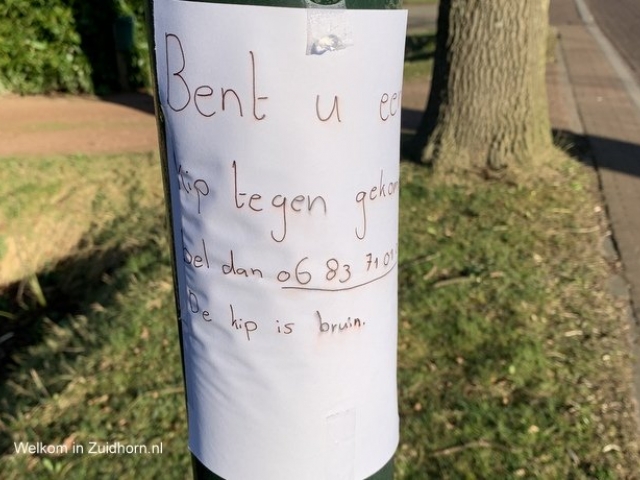 Bent u ee
kip tegen geko
bel dan 06 83 71 0
De kip is bruin.
Welkom in Zuidhorn.nl